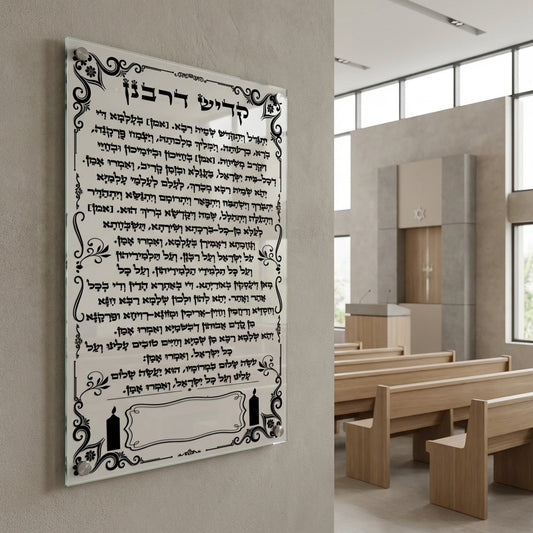 קדיש דרבנן
יתגדל ויתקדש שמיה רבא. [אמן] בעלמא די
ברא כרעותה, וימליך מלכותה, ויצמח פרקנה,
ויקרב משיחה. [אמן] בחייכון וביומיכון ובחיי
דכל-בית ישראל, בעגלא ובזמן קריב, ואמרו אמן.
יהא שמיה רבא מברך, לעלם לעלמי עלמיא
יתברך וישתבח ויתפאר ויתרומם ויתנשא ויתהדר
ויתעלה ויתהלל, שמה דקודשא בריך הוא. [אמן]
לעלא מן-כל-ברכתא ושירתא, תשבחתא
ונחמתא דאמירן בעלמא, ואמרו אמן.
על ישראל ועל רבנן, ועל תלמידיהון
ועל כל תלמידי תלמידיהון, ועל כל
מאן דעסקין באוריתא. די באתרא הדין ודי בכל
אתר ואתר. יהא להון ולכון שלמא רבא חנא
וחסדא ורחמין וחיין-אריכין ומזוני-רויחא ופרקנא
מן קדם אבוהון דבשמיא, ואמרו אמן.
יהא שלמא רבא מן שמיא וחיים טובים עלינו ועל
כל ישראל, ואמרו אמן:
עשה שלום במרומיו, הוא יעשה שלום
עלינו ועל כל ישראל, ואמרו אמן.